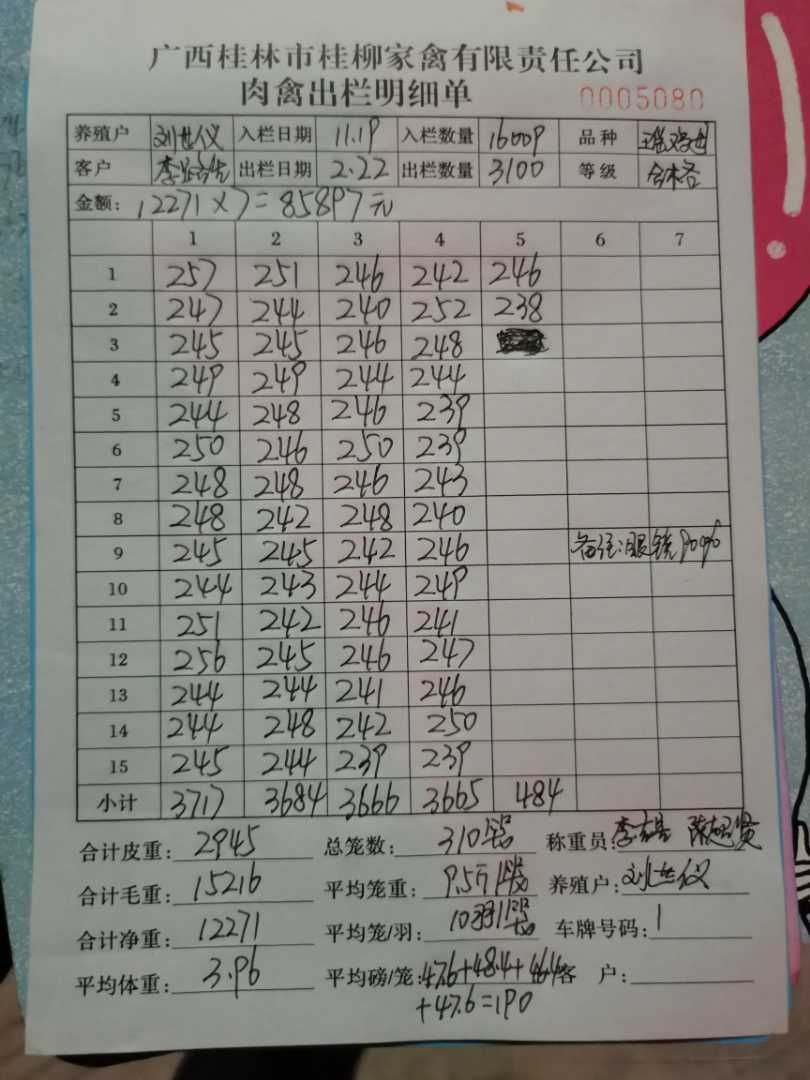 广西桂林市桂柳家禽有限责任公司
肉禽出栏明细单 0005080
养殖户 刘世仪 入栏日期 11.19 入栏数量 16009 品种
客户 出栏日期 2.22 出栏数量 3100 等级 合格
金额: 12271×7=85897元
1 2 3 4 5 6 7
1 257 251 246 242 246
2 247 244 240 252 238
3 245 245 246 248
4 249 249 244 244
5 244 248 246 239
6 250 246 250 239
7 248 248 246 243
8 248 242 248 240
9 245 245 242 246 备注:眼镜90%
10 244 243 244 249
11 251 242 246 241
12 256 245 246 247
13 244 244 241 246
14 244 248 242 250
15 245 244 239 239
小计 3717 3684 3666 3665 484
合计皮重: 2945 总笼数: 310 称重员:
合计毛重: 15216 平均笼重: 9.5 养殖户: 刘世仪
合计净重: 12271 平均笼/羽: 10羽/ 车牌号码: 1
平均体重: 3.96 平均磅/笼: 47.6+48.4+46.4 客户:
+47.6=190